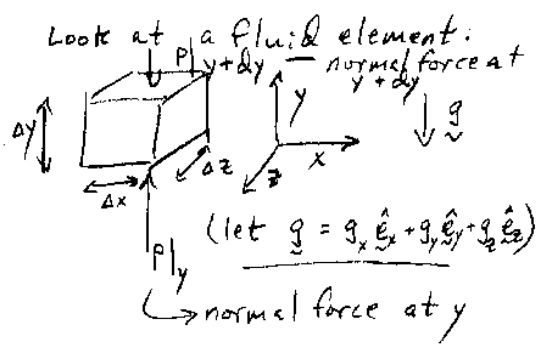 Look at a fluid element:
P|y+dy — normal force at
y + dy
Δy
y
g
x
z
Δz
Δx
(let g = gₓ êₓ + g_y ê_y + g_z ê_z)
P|y
→ normal force at y